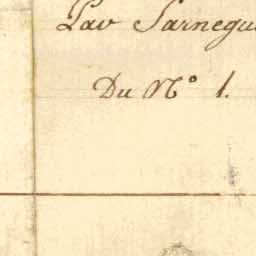 Pav Parnegu
Du N° 1.